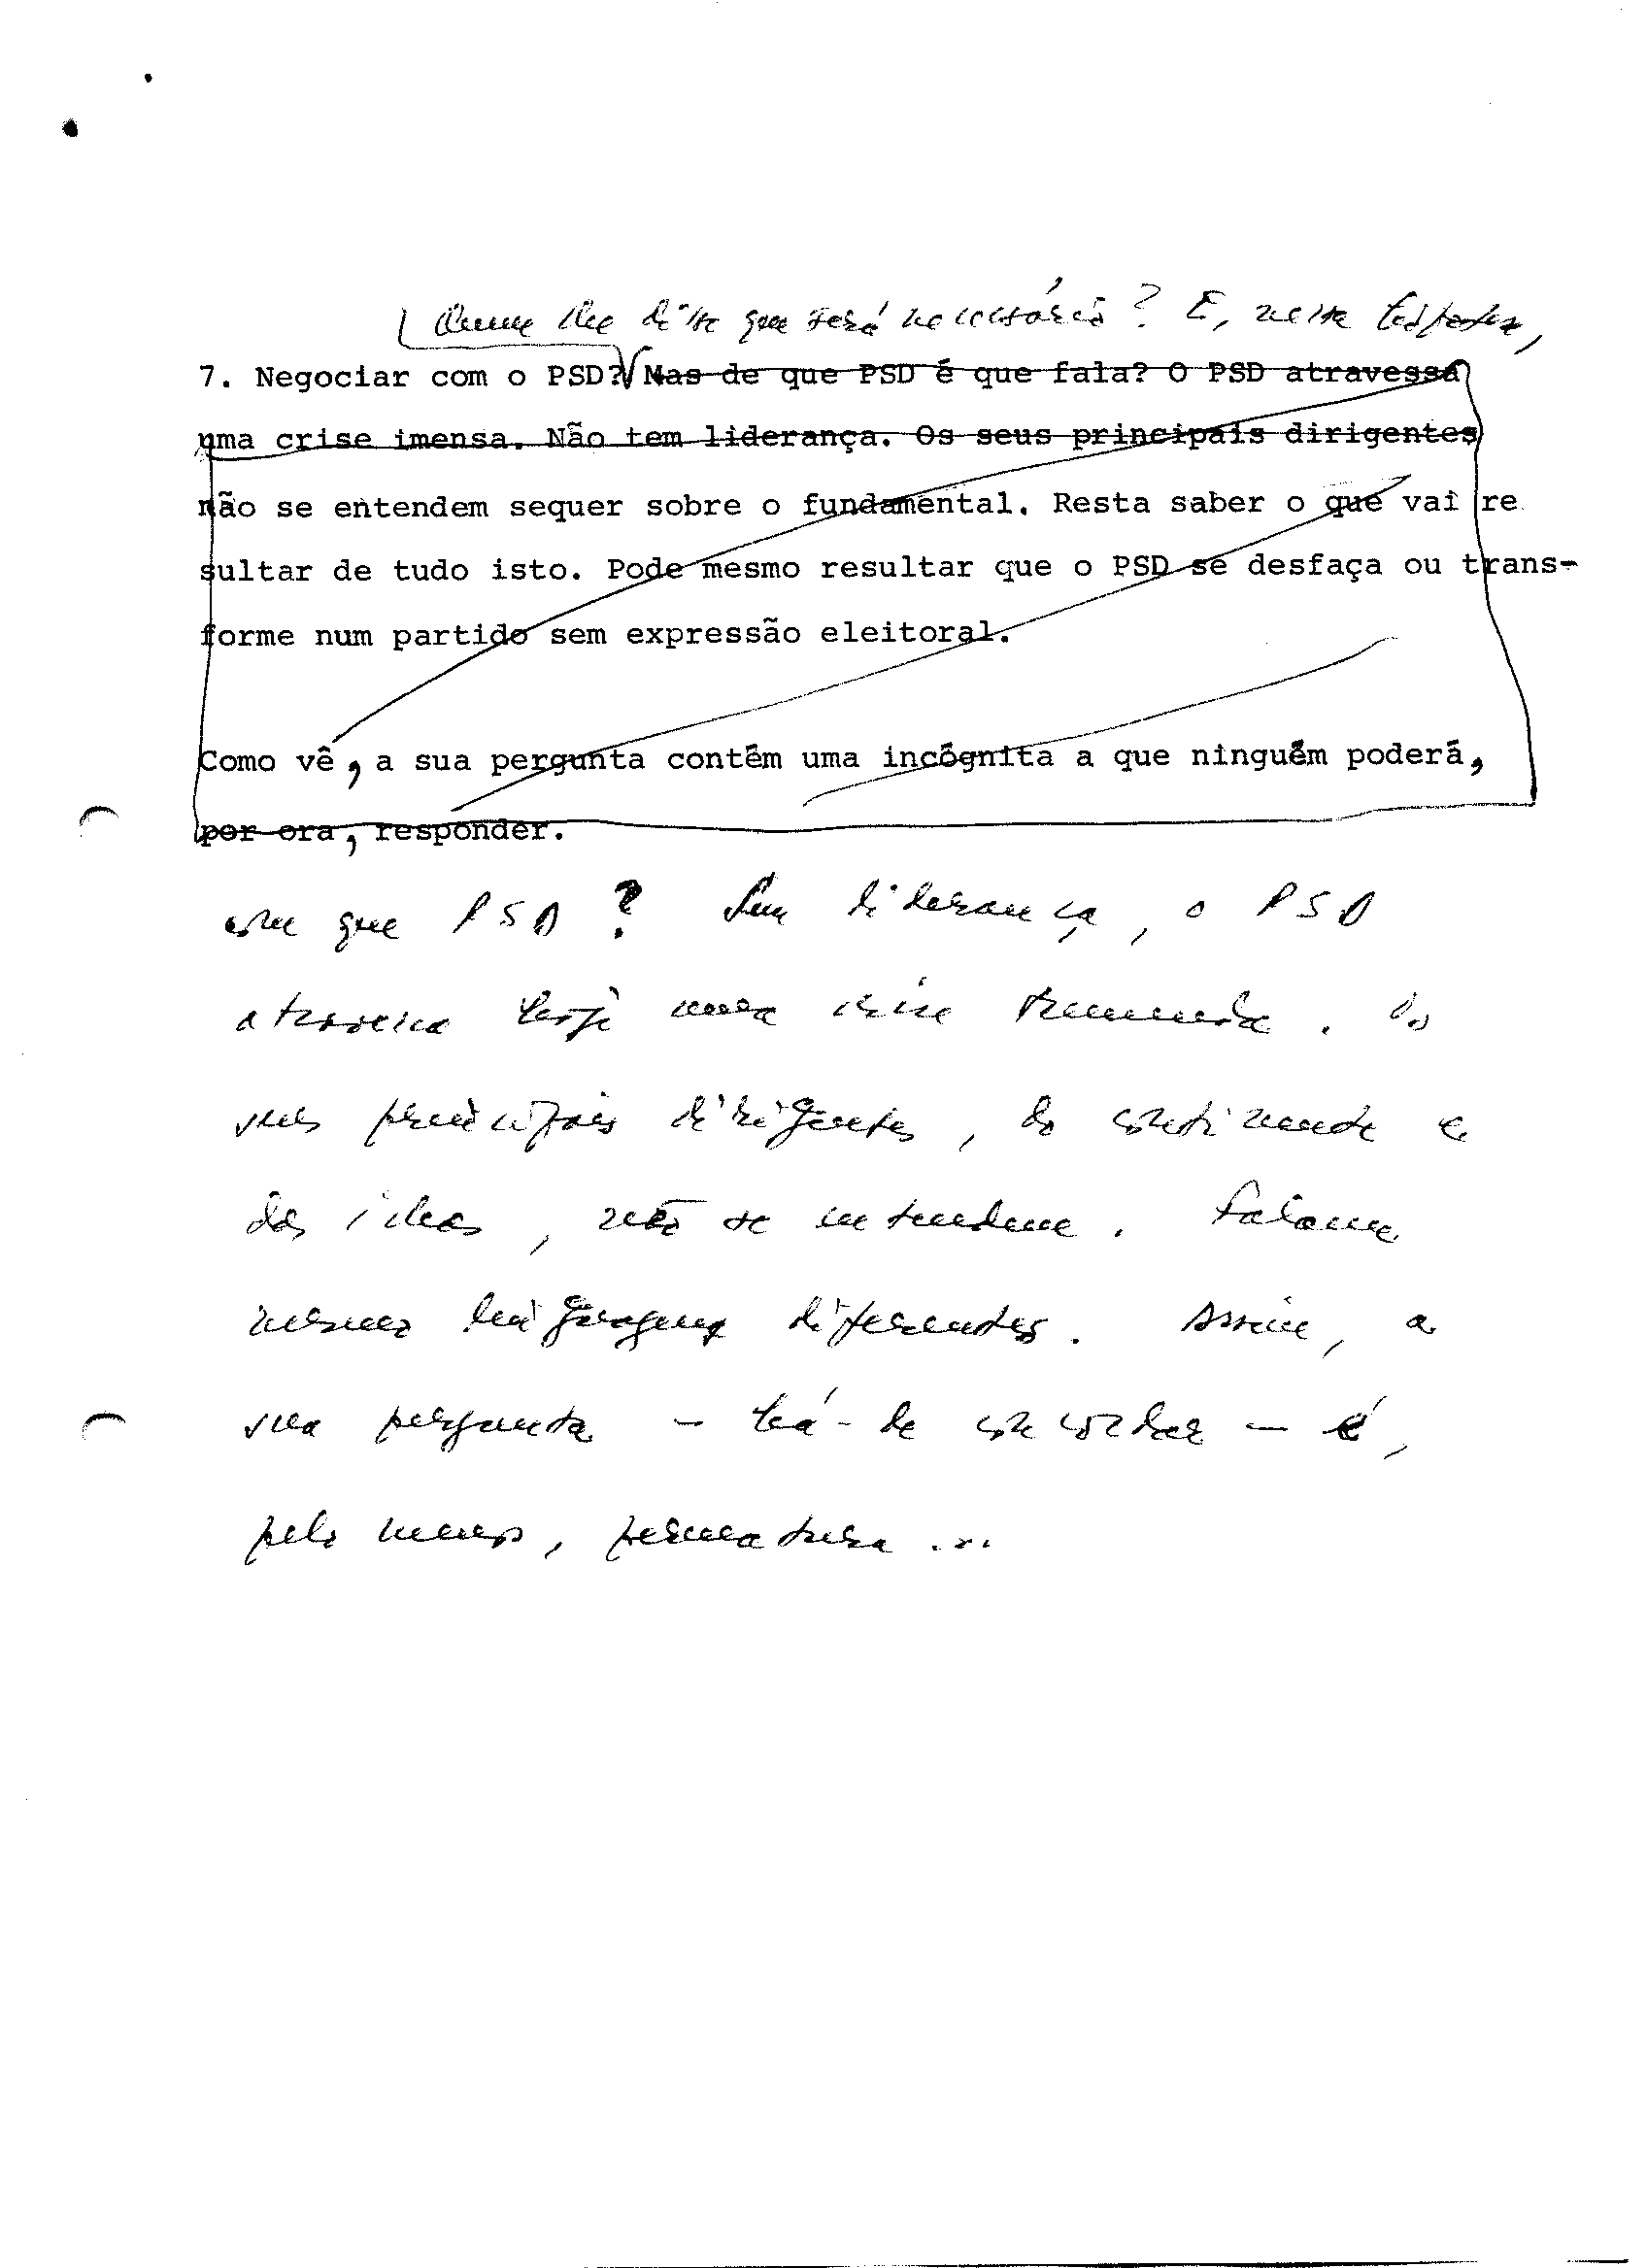 Quem lhe disse que será necessário? E, nessa hipótese,
7. Negociar com o PSD? Mas de que PSD é que fala? O PSD atravessa
uma crise imensa. Não tem liderança. Os seus principais dirigentes
não se entendem sequer sobre o fundamental. Resta saber o que vai re
sultar de tudo isto. Pode mesmo resultar que o PSD se desfaça ou trans-
forme num partido sem expressão eleitoral.
Como vê, a sua pergunta contém uma incógnita a que ninguém poderá,
por ora, responder.
com que PSD? Sem liderança, o PSD
atravessa hoje uma crise tremenda. Os
seus principais dirigentes, do continente e
das ilhas, não se entendem. Falam
mesmo linguagens diferentes. Assim, a
sua pergunta - há-de concordar - é,
pelo menos, prematura...